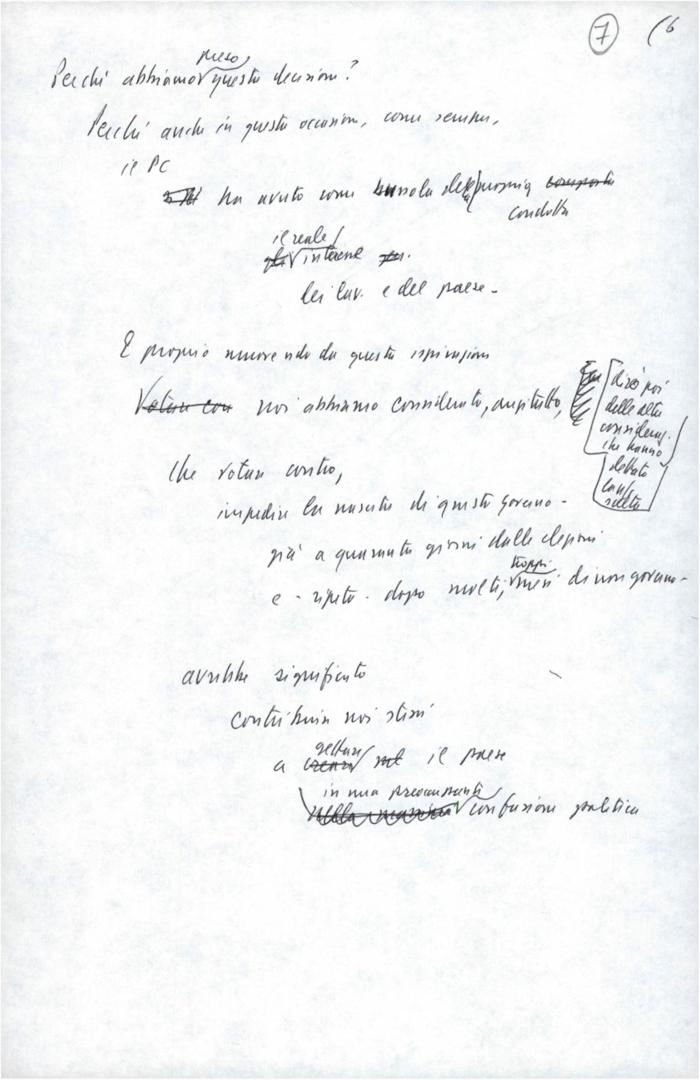 7 (6
preso
Perché abbiamo questa decisione?
Perché anche in questa occasione, come sempre,
il PC
ha avuto come bussola della propria
condotta
il reale
interesse
dei lav. e del paese -
E proprio muovendo da questa ispirazione
Votare con noi abbiamo considerato, anzitutto,
dirò poi
delle altre
consideraz.
che hanno
dettato
scelta
che votare contro,
impedire la nascita di questo governo -
già a quaranta giorni dalle elezioni
troppi
e - ripeto - dopo molti, mesi di non governo -
avrebbe significato
contribuire noi stessi
gettare
a il paese
in una preoccupante
confusione politica